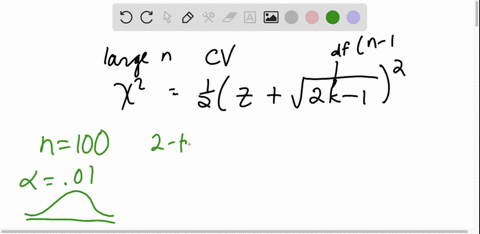 large n CV df (n-1
χ² = ½(z + √2k-1)²
n=100 2-t
α = .01